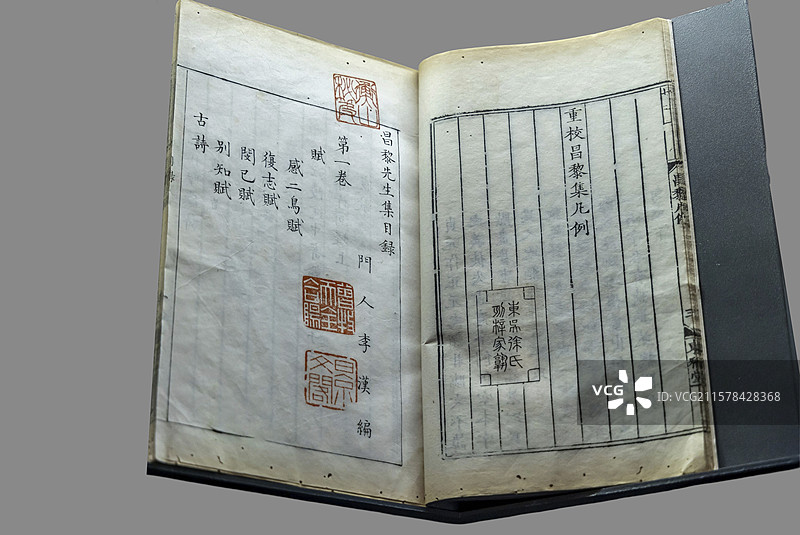 重校昌黎集凡例
東吳徐氏
刻梓家塾
昌黎先生集目録
門人李漢編
第一卷
賦
感二鳥賦
復志賦
閔己賦
别知賦
古詩
VCG
ID: VCG211578428368